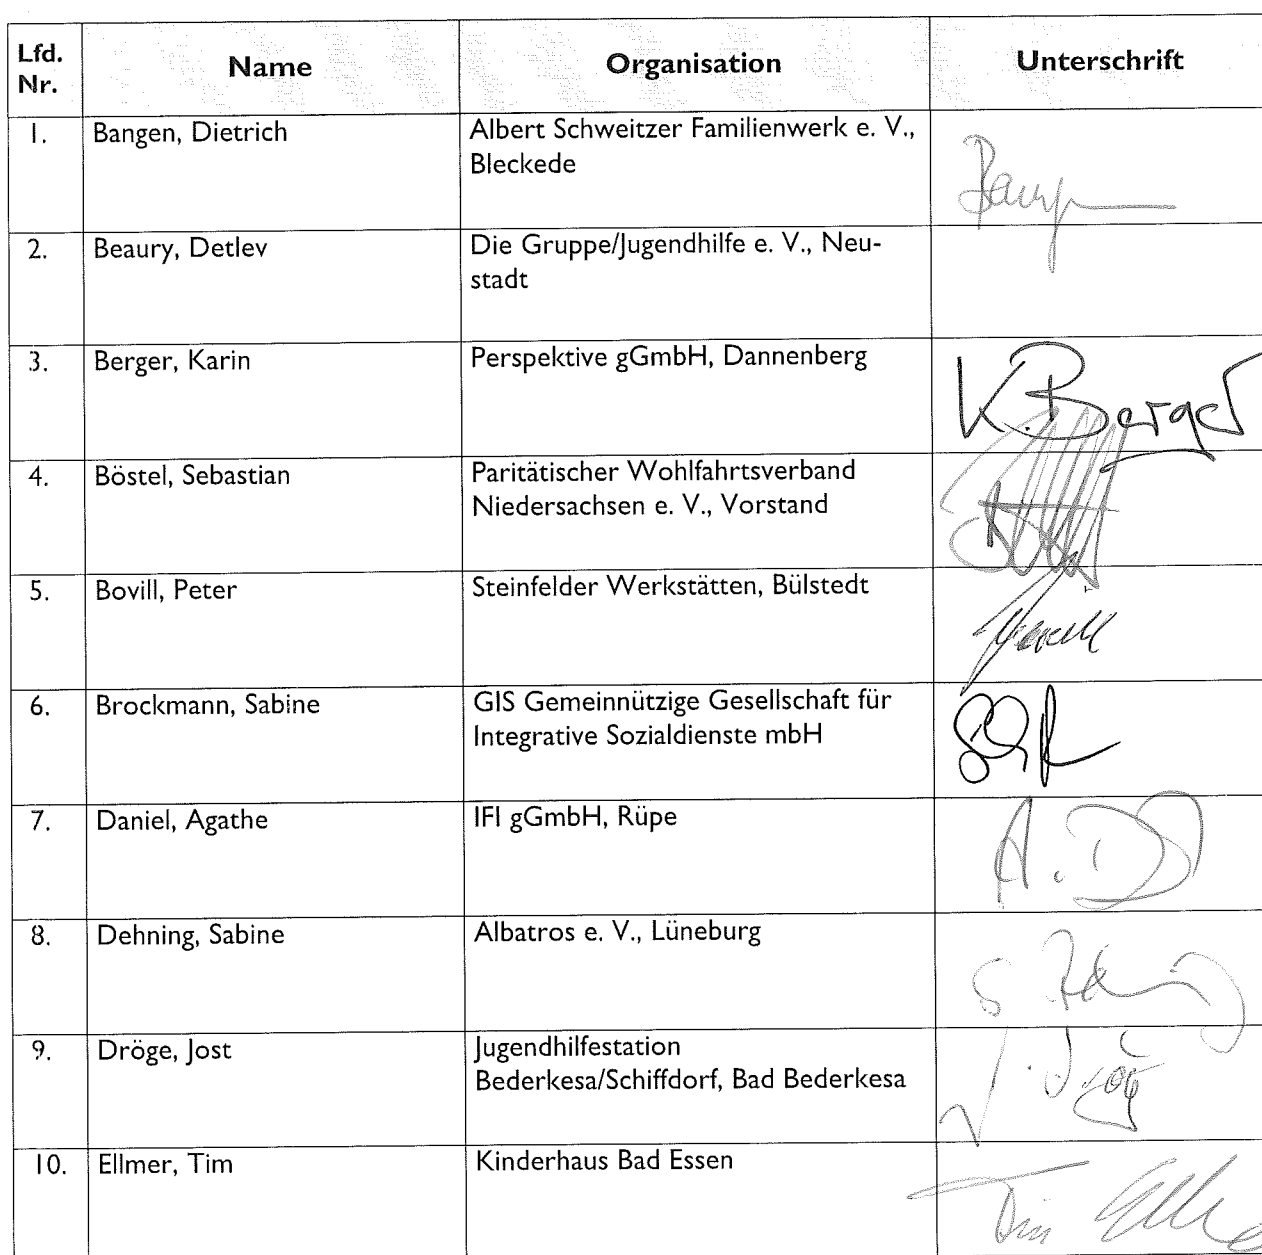 Lfd. Nr. Name Organisation Unterschrift
1. Bangen, Dietrich Albert Schweitzer Familienwerk e. V.,
Bleckede
2. Beaury, Detlev Die Gruppe/Jugendhilfe e. V., Neu-
stadt
3. Berger, Karin Perspektive gGmbH, Dannenberg K. Berger
4. Böstel, Sebastian Paritätischer Wohlfahrtsverband
Niedersachsen e. V., Vorstand
5. Bovill, Peter Steinfelder Werkstätten, Bülstedt
6. Brockmann, Sabine GIS Gemeinnützige Gesellschaft für
Integrative Sozialdienste mbH
7. Daniel, Agathe IFI gGmbH, Rüpe
8. Dehning, Sabine Albatros e. V., Lüneburg
9. Dröge, Jost Jugendhilfestation
Bederkesa/Schiffdorf, Bad Bederkesa
10. Ellmer, Tim Kinderhaus Bad Essen Tim